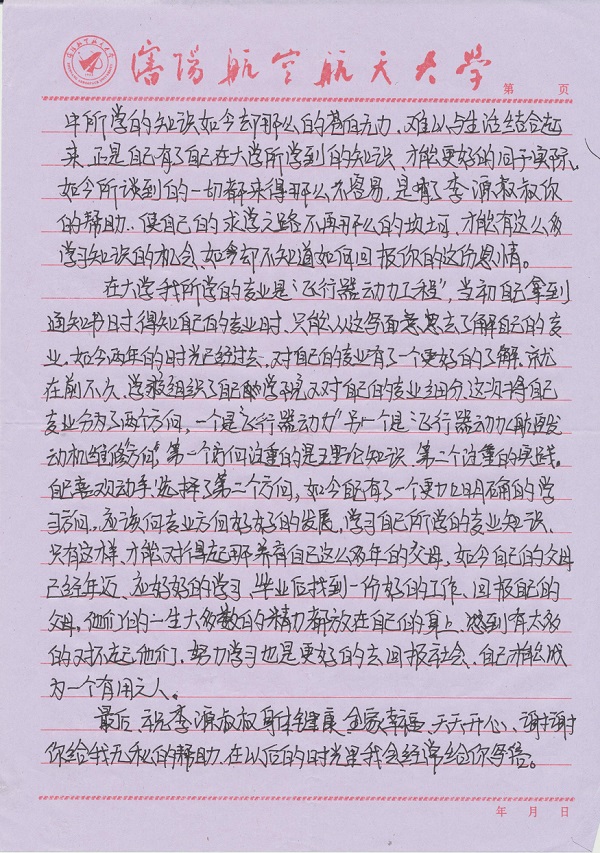 瀋陽航空航天大學
第 页
中所学的知识如今却那么的苍白无力、难以与生活结合起
来、正是自己有了自己在大学所学到的知识、才能更好的回于实际。
如今所谈到的一切都来得那么不容易,是有了李源叔叔你
的帮助..使自己的求学之路不再那么的坎坷,才能有这么多
学习知识的机会、如今却不知道如何回报你的这份恩情。
在大学我所学的专业是“飞行器动力工程”,当初自己拿到
通知书时,得知自己的专业时、只能从这字面意思去了解自己的专
业.如今两年的时光已经过去、对自己的专业有了一个更好的了解.就
在前不久、学校组织了自己的学院对自己的专业细分.这次将自己
专业分为了两个方向,一个是“飞行器动力”另一个是“飞行器动力(航空发
动机维修方向)”.第一个方向注重的是理论知识、第二个注重的实践。
自己喜欢动手,选择了第二个方向,如今自己有了一个更加明确的学
习方向,应该向专业方向好好的发展,学习自己所学的专业知识、
只有这样、才能对得起那养育自己这么多年的父母,如今自己的父母
已经年迈、应好好的学习、毕业后找到一份好的工作、回报自己的
父母,他们的一生大多数的精力都放在自己的身上.感到有太多
的对不起他们.努力学习也是更好的去回报社会、自己才能成
为一个有用之人。
最后、祝李源叔叔身体健康、全家幸福、天天开心、谢谢
你给我无私的帮助.在以后的时光里我会经常给你写信。
年 月 日